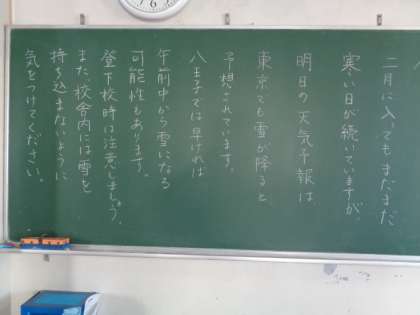 二月に入ってもまだまだ
寒い日が続いていますが、
明日の天気予報は
東京でも雪が降ると
予想されています。
八王子では早ければ
午前中から雪になる
可能性もあります。
登下校時は注意しましょう。
また、校舎内には雪を
持ち込まないように
気をつけてください。